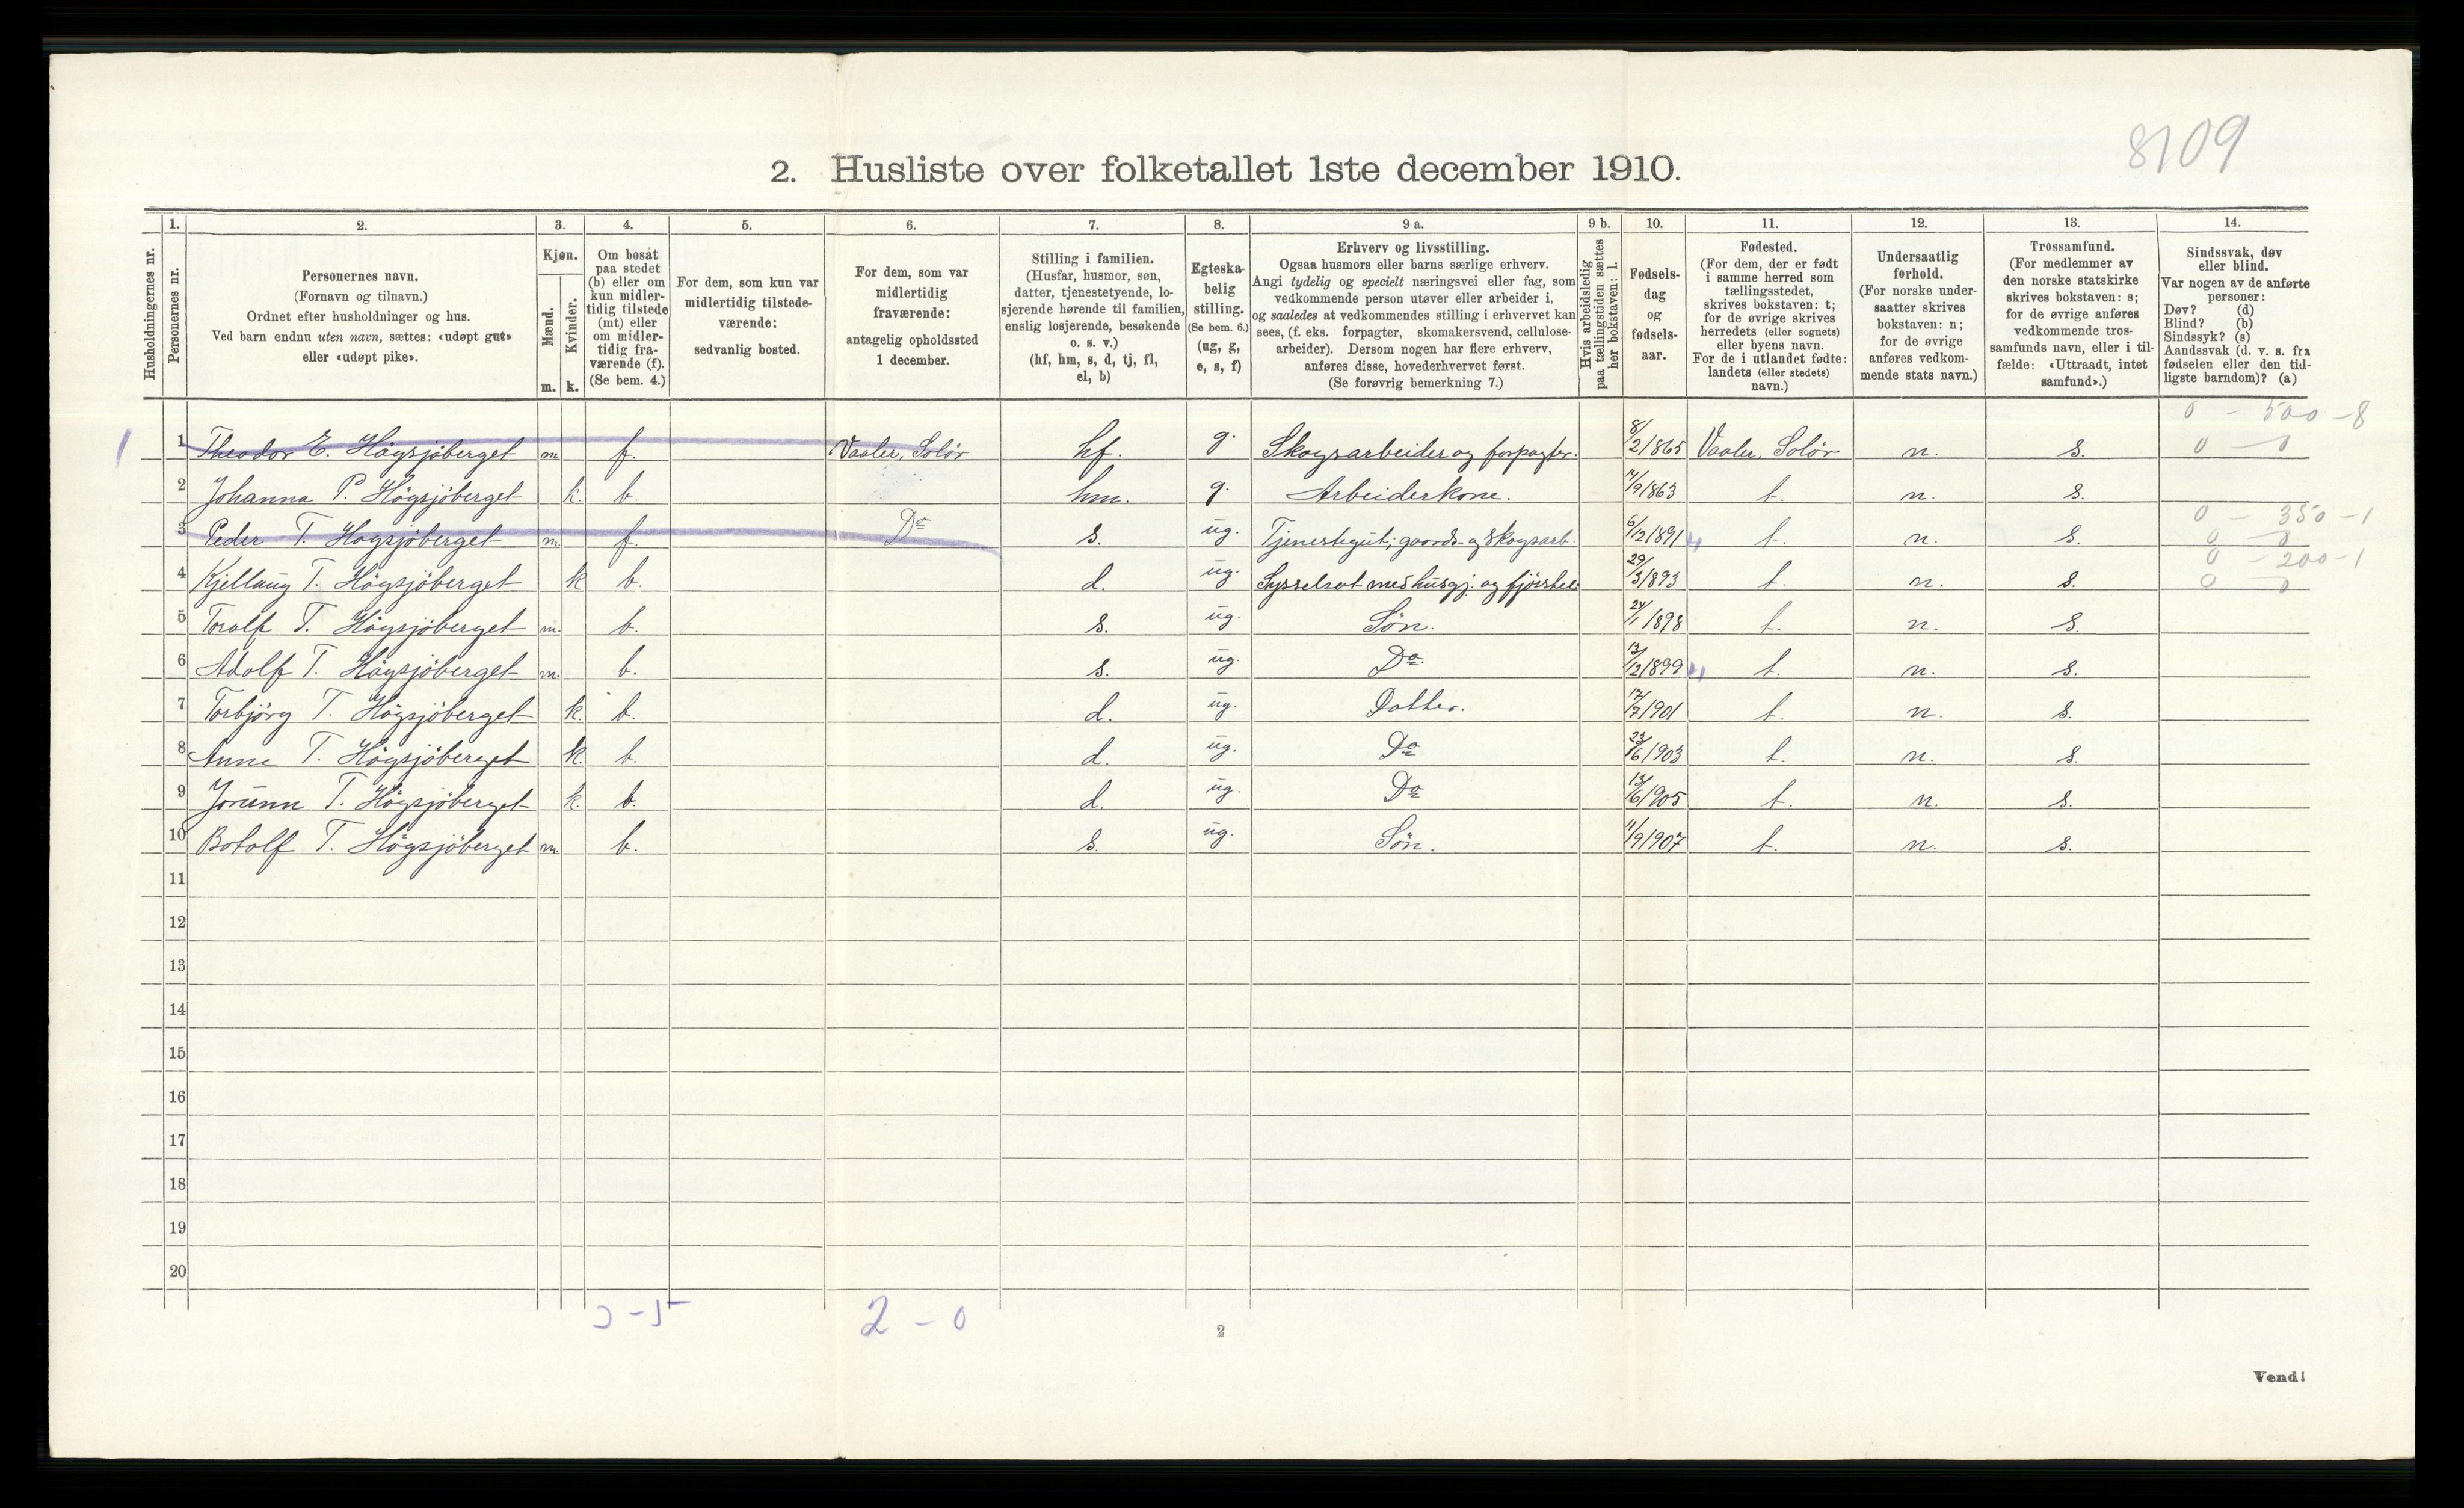 8109
2. Husliste over folketallet 1ste december 1910.
Husholdningernes nr.
1.
Personernes nr.
2.
Personernes navn.
(Fornavn og tilnavn.)
Ordnet efter husholdninger og hus.
Ved barn endnu uten navn, sættes: «udøpt gut»
eller «udøpt pike».
3.
Kjøn.
Mænd.
m.
Kvinder.
k.
4.
Om bosat
paa stedet
(b) eller om
kun midler-
tidig tilstede
(mt) eller
om midler-
tidig fra-
værende (f).
(Se bem. 4.)
5.
For dem, som kun var
midlertidig tilstede-
værende:
sedvanlig bosted.
6.
For dem, som var
midlertidig
fraværende:
antagelig opholdssted
1 december.
7.
Stilling i familien.
(Husfar, husmor, søn,
datter, tjenestetyende, lo-
sjerende hørende til familien,
enslig losjerende, besøkende
o. s. v.)
(hf, hm, s, d, tj, fl,
el, b)
8.
Egteska-
belig
stilling.
(Se bem. 6.)
(ug, g,
e, s, f)
9 a.
Erhverv og livsstilling.
Ogsaa husmors eller barns særlige erhverv.
Angi tydelig og specielt næringsvei eller fag, som
vedkommende person utøver eller arbeider i,
og saaledes at vedkommendes stilling i erhvervet kan
sees, (f. eks. forpagter, skomakersvend, cellulose-
arbeider). Dersom nogen har flere erhverv,
anføres disse, hovederhvervet først.
(Se forøvrig bemerkning 7.)
9 b.
Hvis arbeidsledig
paa tællingstiden sættes
her bokstaven: l.
10.
Fødsels-
dag
og
fødsels-
aar.
11.
Fødested.
(For dem, der er født
i samme herred som
tællingsstedet,
skrives bokstaven: t;
for de øvrige skrives
herredets (eller sognets)
eller byens navn.
For de i utlandet fødte:
landets (eller stedets)
navn.)
12.
Undersaatlig
førhold.
(For norske under-
saatter skrives
bokstaven: n;
for de øvrige
anføres vedkom-
mende stats navn.)
13.
Trossamfund.
(For medlemmer av
den norske statskirke
skrives bokstaven: s;
for de øvrige anføres
vedkommende tros-
samfunds navn, eller i til-
fælde: «Uttraadt, intet
samfund».)
14.
Sindssvak, døv
eller blind.
Var nogen av de anførte
personer:
Døv? (d)
Blind? (b)
Sindssyk? (s)
Aandssvak (d. v. s. fra
fødselen eller den tid-
ligste barndom)? (a)
0 - 500 - 8
1 1 Theodor E. Högsjöberget m. f. Vaaler, Solör hf. g. Skogsarbeider og forpagter. 8/2 1865 Vaaler, Solör n. s. 0 - 0
2 Johanna P. Högsjöberget k. b. hm. g. Arbeiderkone. 14/9 1863 t. n. s.
0 - 350 - 1
3 Peder T. Högsjöberget m. f. Do s. ug. Tjenestegut; gaards- og skogsarb. 6/12 1891 t. n. s. 0 - 0
0 - 200 - 1
4 Kjellaug T. Högsjöberget k b. d. ug. Sysselsat med husgj. og fjösstel 29/3 1893 t. n. s. 0 0
5 Toralf T. Högsjöberget m. b. s. ug. Søn. 24/1 1898 t. n. s.
6 Adolf T. Högsjöberget m. b. s. ug. Do. 13/12 1899 t. n. s.
7 Torbjörg T. Högsjöberget k. b. d. ug. Datter. 17/7 1901 t. n. s.
8 Anne T. Högsjöberget k. b. d. ug. Do 23/6 1903 t. n. s.
9 Jorunn T. Högsjöberget k. b. d. ug. Do 13/6 1905 t. n. s.
10 Botolf T. Högsjöberget m. b. s. ug. Søn. 11/9 1907 t. n. s.
11
12
13
14
15
16
17
18
19
20
2 - 0
2
Vend!